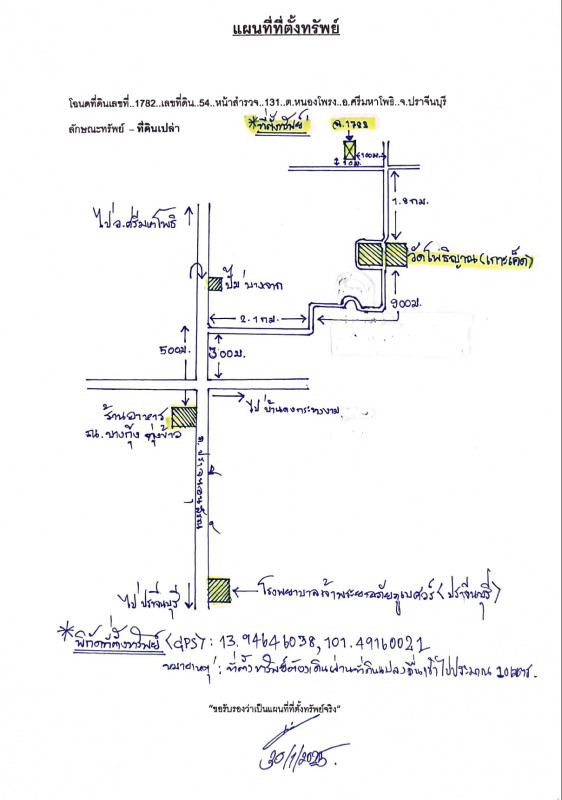 แผนที่ที่ตั้งทรัพย์
โฉนดที่ดินเลขที่..1782..เลขที่ดิน..54..หน้าสำรวจ..131..ต.หนองโพรง..อ.ศรีมหาโพธิ..จ.ปราจีนบุรี
ลักษณะทรัพย์ - ที่ดินเปล่า
*ที่ตั้งทรัพย์
ฉ.1782
100ม.
210ม.
1.8 กม.
ไป อ.ศรีมหาโพธิ
วัดโพธิญาณ(เกาะเค็ด)
ปั๊ม บางจาก
900ม.
2.1 กม.
500ม.
300ม.
ไป บ้านดงกระทงยาม
ร้านอาหาร
ถ.ปราจีนอนุสรณ์
ไป ปราจีนบุรี
โรงพยาบาลเจ้าพระยาอภัยภูเบศวร์ (ปราจีนบุรี)
*พิกัดที่ตั้งทรัพย์ (GPS) : 13.94646038, 101.49160021
หมายเหตุ : ที่ตั้งทรัพย์ต้องเดินผ่านที่ดินแปลงอื่นเข้าไปประมาณ 210เมตร.
"ขอรับรองว่าเป็นแผนที่ที่ตั้งทรัพย์จริง"
30/1/2025.